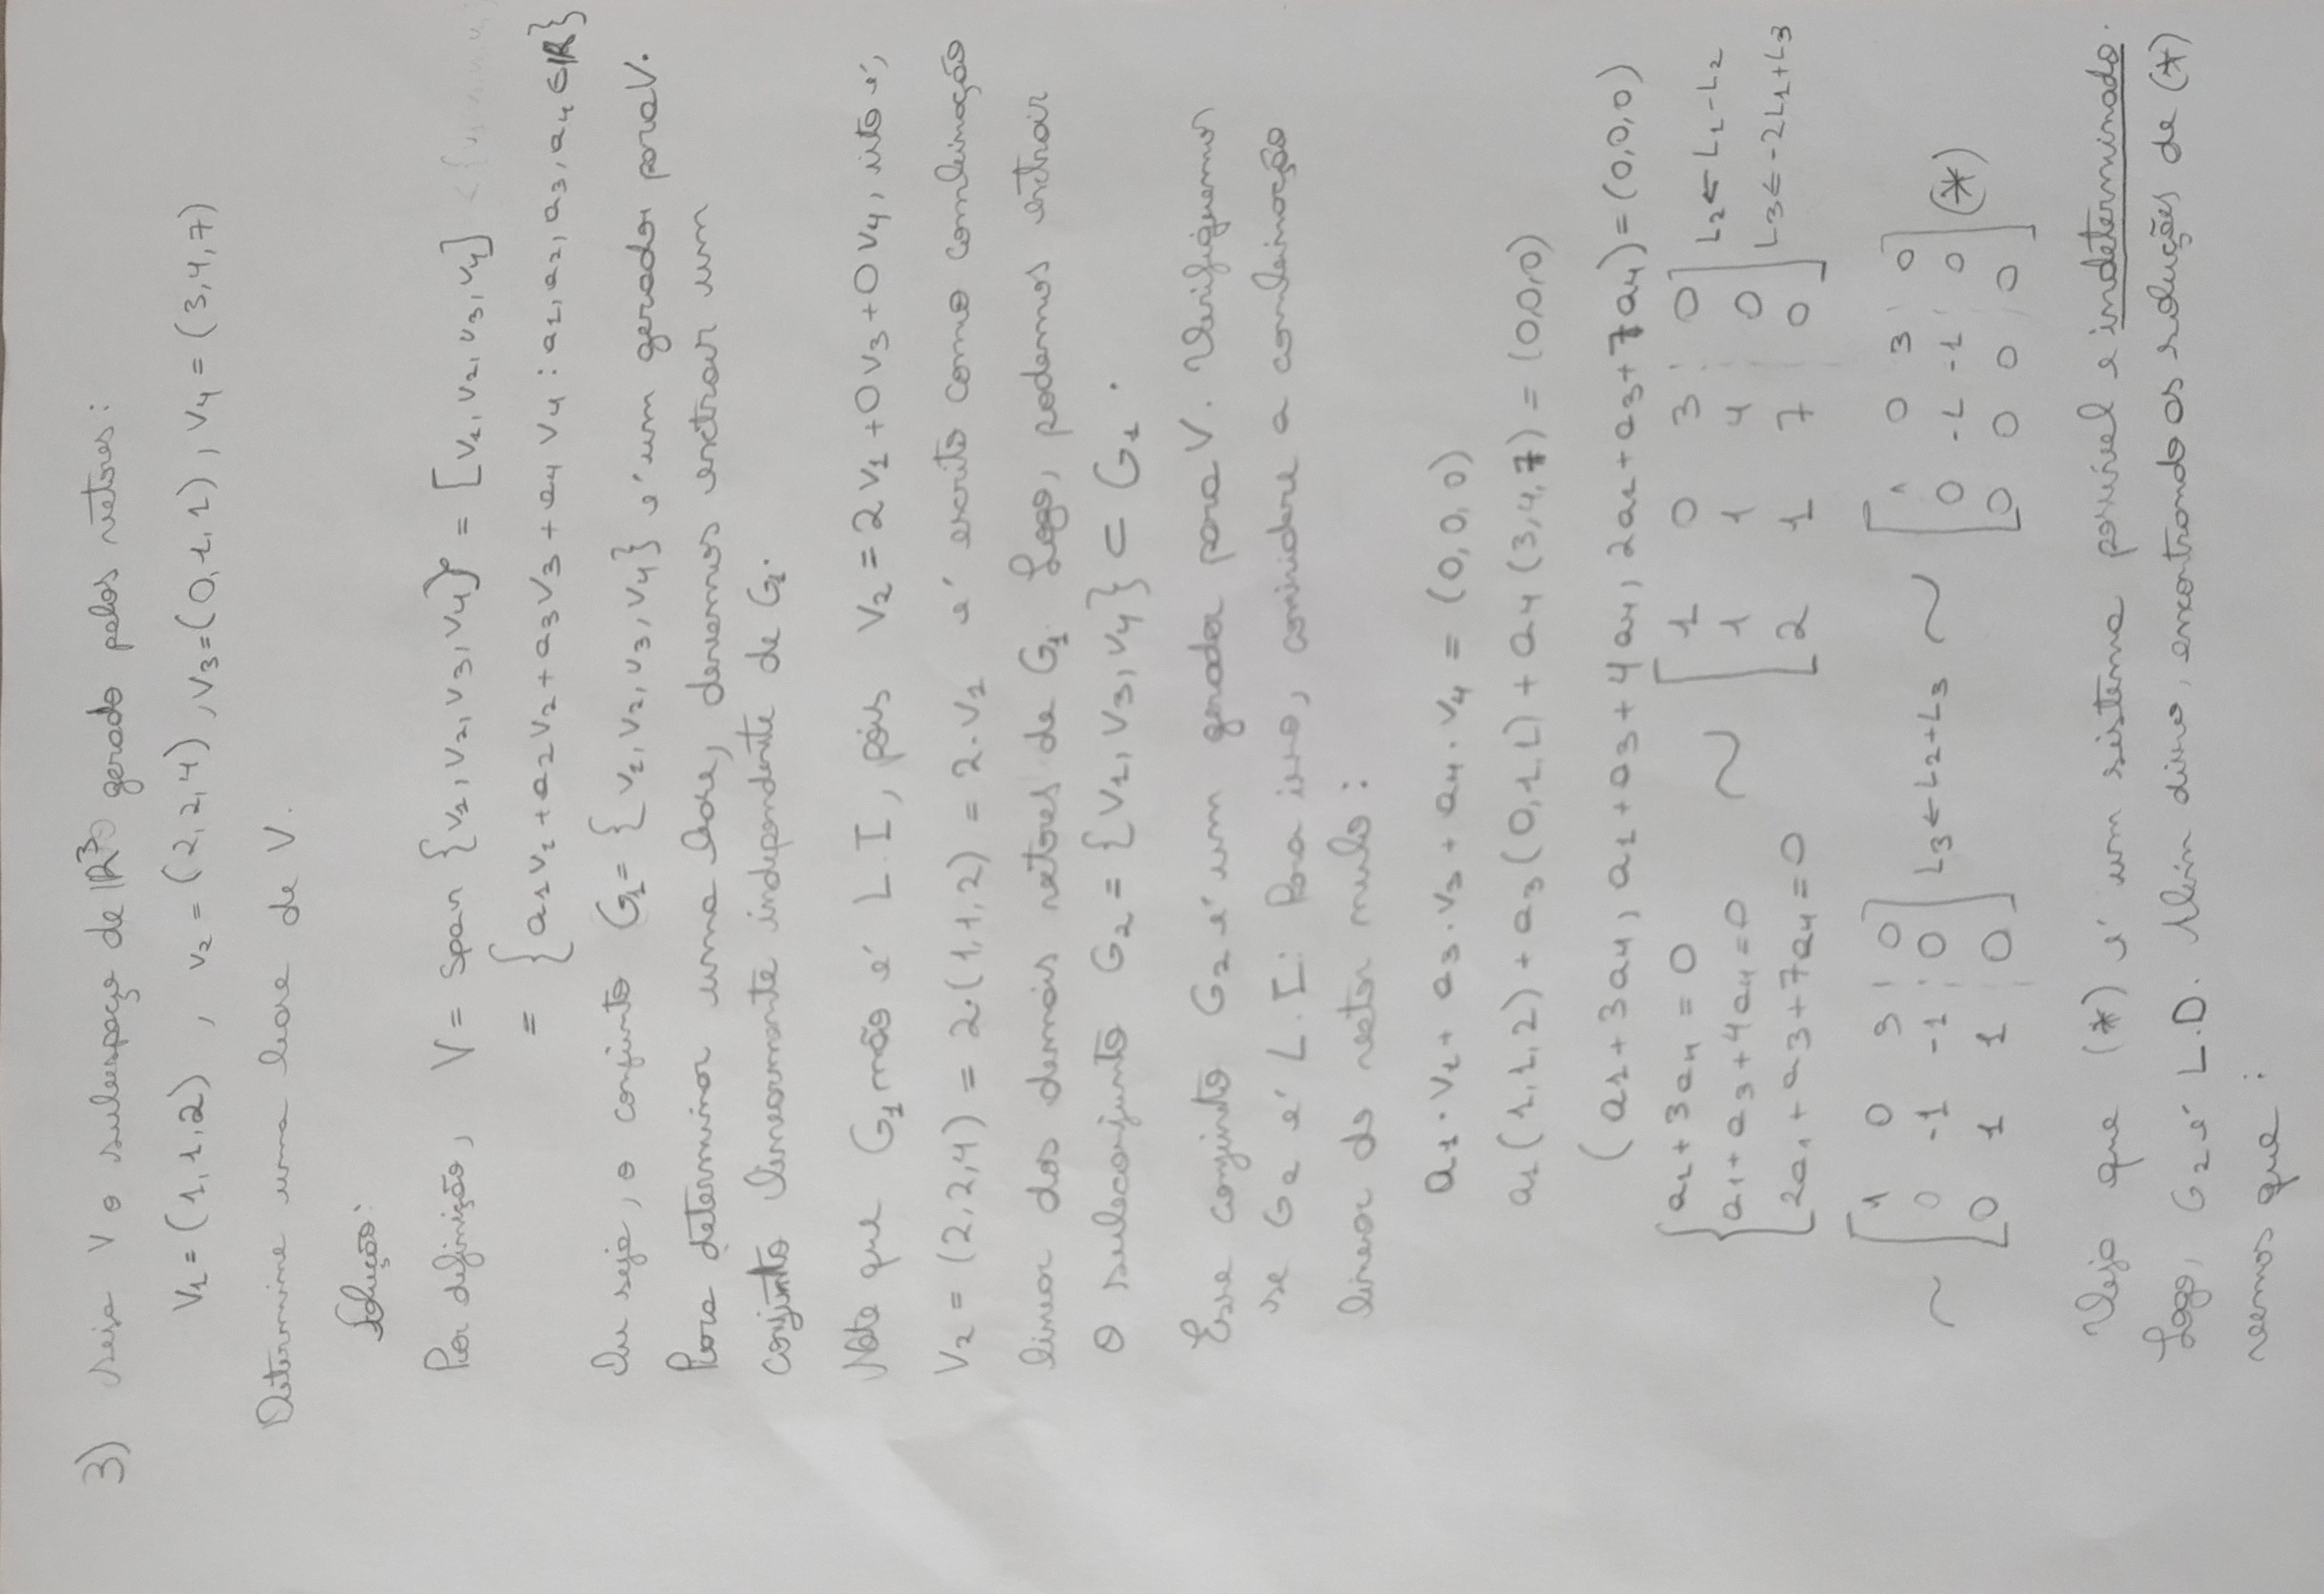 3) Seja V o subespaço de IR³ gerado pelos vetores:
V₁ = (1,1,2) , v₂ = (2,2,4) , v₃ = (0,1,1) , v₄ = (3,4,7)
Determine uma base de V.
Solução:
Por definição, V = span {v₁, v₂, v₃, v₄} = [v₁, v₂, v₃, v₄]
= {a₁v₁ + a₂v₂ + a₃v₃ + a₄v₄ : a₁, a₂, a₃, a₄ ∈ IR}
Ou seja, o conjunto G₁ = {v₁, v₂, v₃, v₄} é um gerador para V.
Para determinar uma base, devemos extrair um
conjunto linearmente independente de G₁.
Note que G₁ não é L.I, pois V₂ = 2v₁ + 0v₃ + 0v₄, isto é,
V₂ = (2,2,4) = 2·(1,1,2) = 2·v₁ é escrito como combinação
linear dos demais vetores de G₁. Logo, podemos extrair
o subconjunto G₂ = {v₁, v₃, v₄} ⊂ G₁.
Esse conjunto G₂ é um gerador para V. Verifiquemos
se G₂ é L.I. Para isso, considere a combinação
linear do vetor nulo:
a₁·v₁ + a₃·v₃ + a₄·v₄ = (0,0,0)
a₁(1,1,2) + a₃(0,1,1) + a₄(3,4,7) = (0,0,0)
(a₁+3a₄, a₁+a₃+4a₄, 2a₁+a₃+7a₄) = (0,0,0)
{ a₁+3a₄ = 0 [ 1 0 3 ¦ 0 ]
{ a₁+a₃+4a₄ = 0 ~ [ 1 1 4 ¦ 0 ] L₂ ← L₁-L₂
{ 2a₁+a₃+7a₄ = 0 [ 2 1 7 ¦ 0 ] L₃ ← -2L₁+L₃
[ 1 0 3 ¦ 0 ] [ 1 0 3 ¦ 0 ]
~ [ 0 -1 -1 ¦ 0 ] L₃ ← L₂+L₃ ~ [ 0 -1 -1 ¦ 0 ] (*)
[ 0 1 1 ¦ 0 ] [ 0 0 0 ¦ 0 ]
Veja que (*) é um sistema possível e indeterminado.
Logo, G₂ é L.D. Além disso, encontrando as soluções de (*)
vemos que: